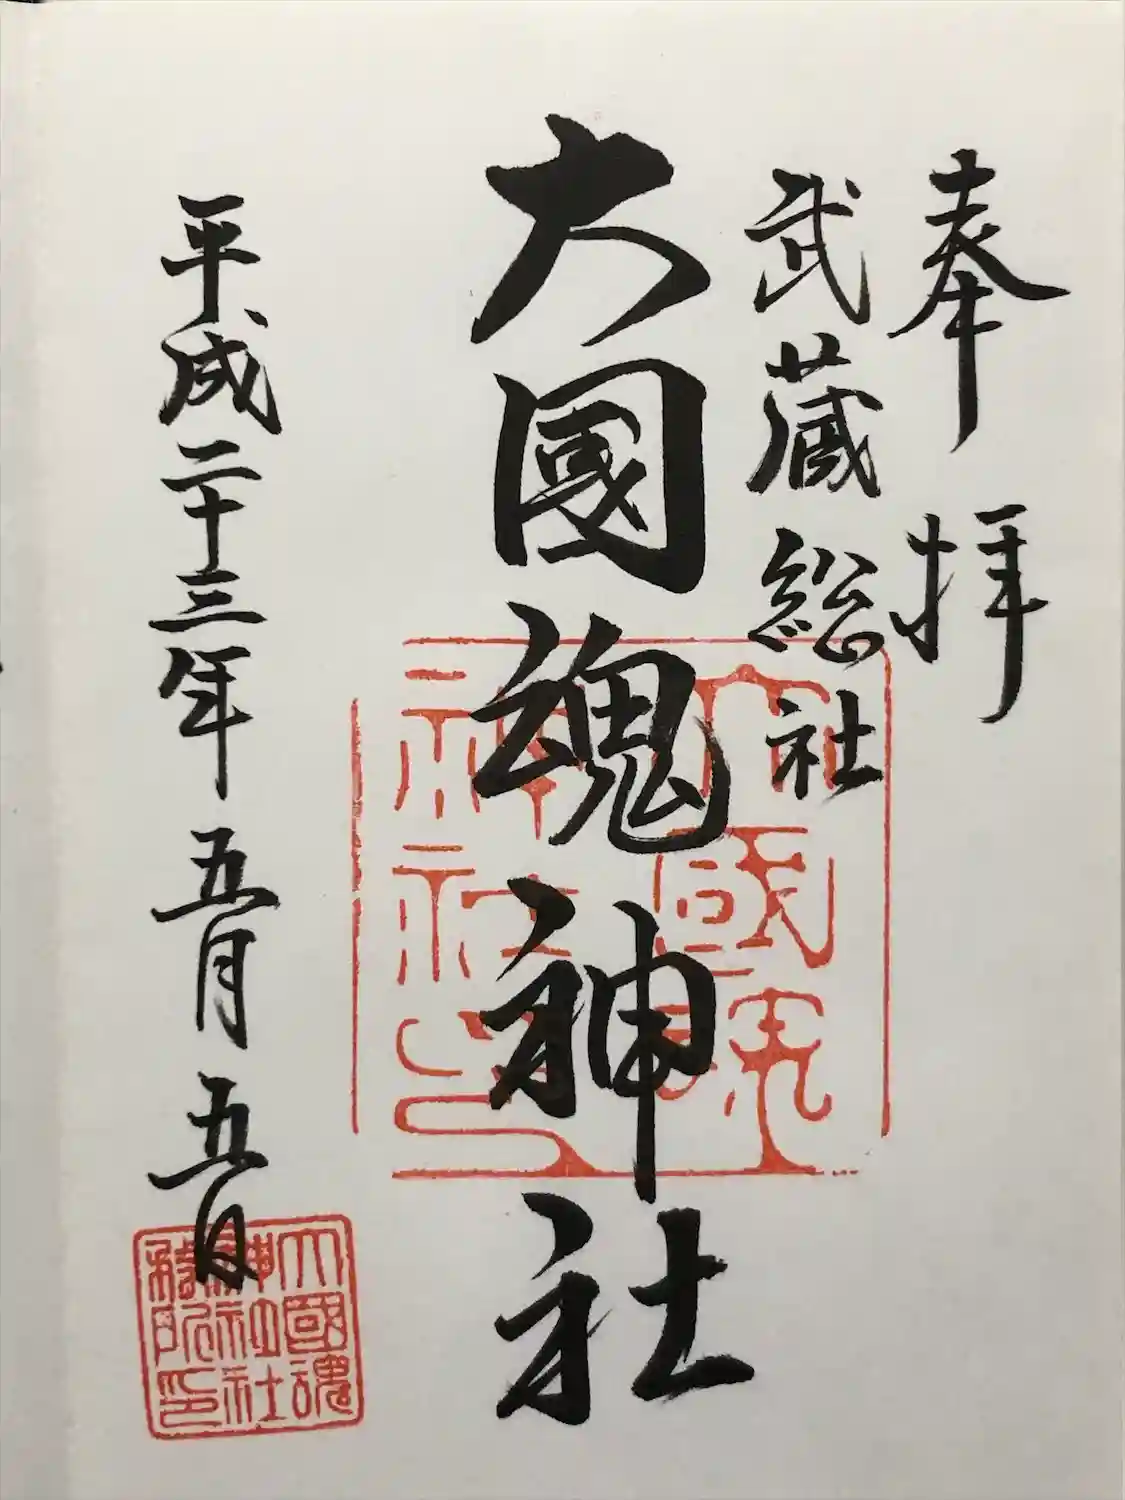 奉拝
武蔵総社
大國魂神社
平成二十三年 五月 五日
大國魂
神社印
大國魂
神社社
務所印